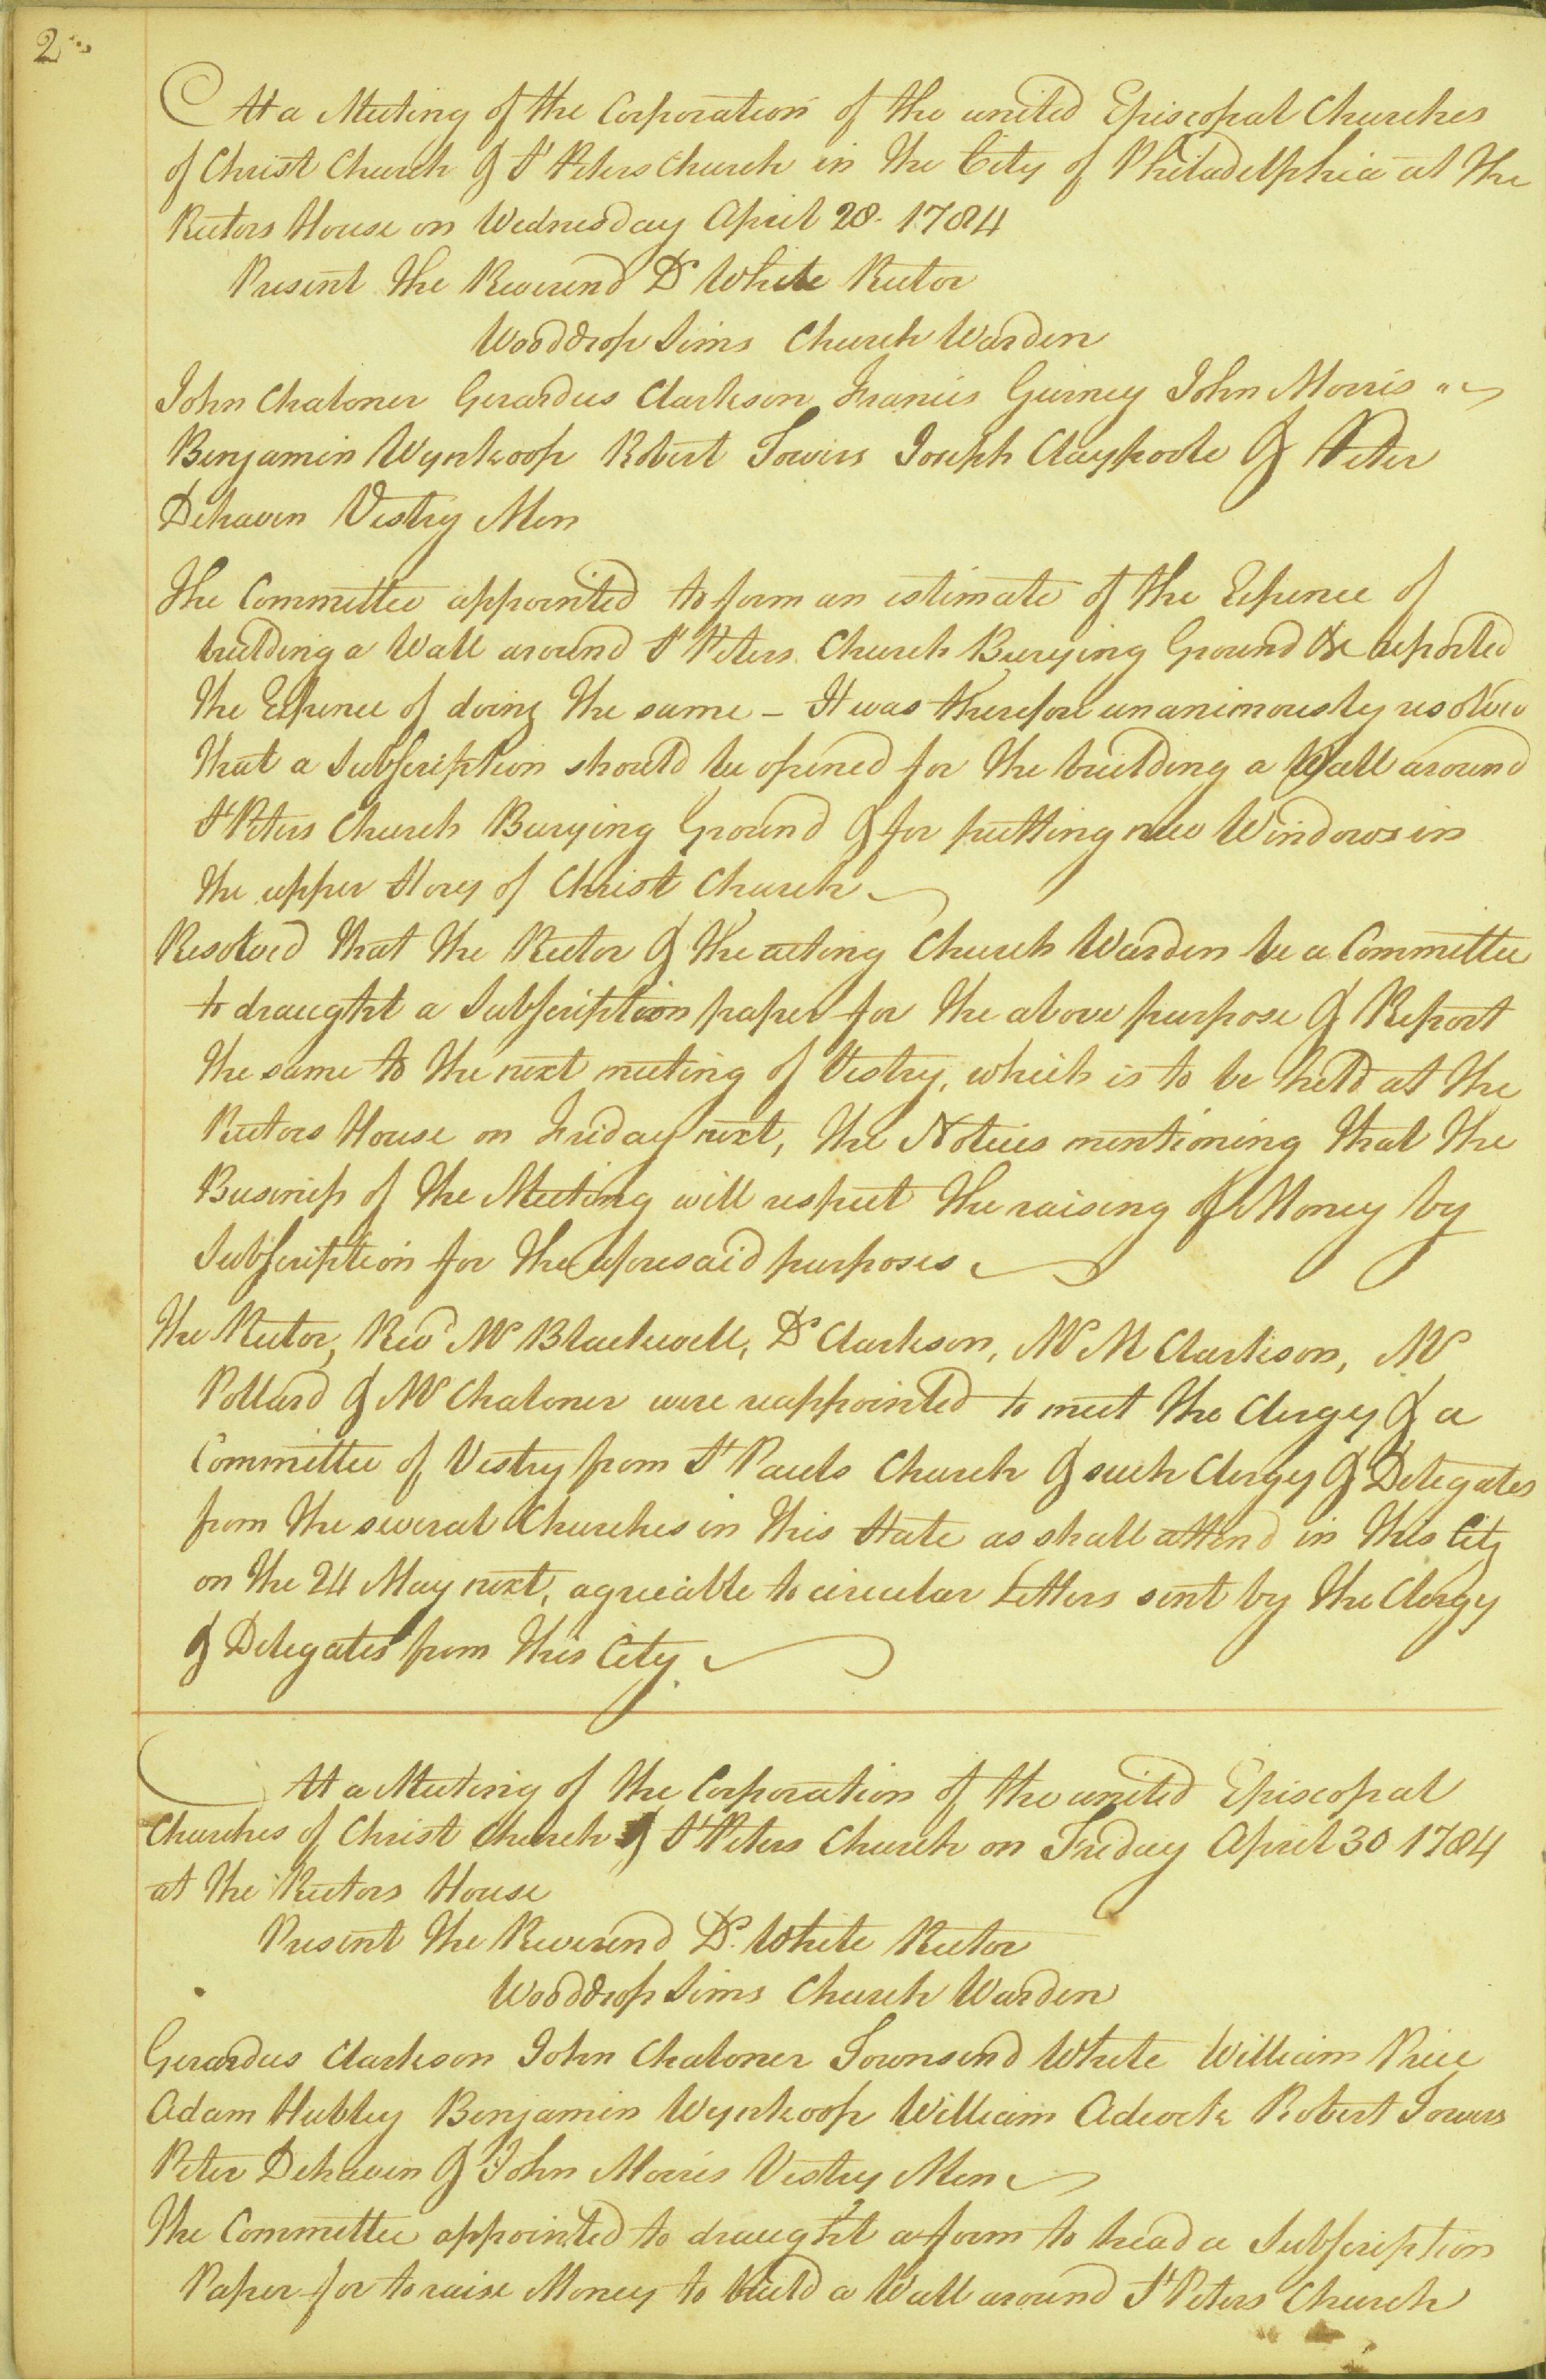 2
At a Meeting of the Corporation of the united Episcopal Churches
of Christ Church & St Peters Church in the City of Philadelphia at the
Rectors House on Wednesday April 28. 1784
Present the Reverend Dr White Rector
Wooddrop Sims Church Warden
John Chaloner Gerardus Clarkson Francis Gurney John Morris
Benjamin Wynkoop Robert Towers Joseph Claypoole & Peter
Dehaven Vestry Men
The Committee appointed to form an estimate of the Expence of
building a Wall around St Peters Church Burying Ground &c reported
the Expence of doing the same – It was therefore unanimously resolved
that a Subscription should be opened for the building a Wall around
St Peters Church Burying Ground & for putting new Windows in
the upper Story of Christ Church
Resolved that the Rector & the acting Church Warden be a Committee
to draught a Subscription paper for the above purpose & Report
the same to the next meeting of Vestry, which is to be held at the
Rectors House on Friday next, the Notices mentioning that the
Business of the Meeting will respect the raising of Money by
Subscription for the aforesaid purposes
The Rector, Revd Mr Blackwell, Dr Clarkson, Mr M Clarkson, Mr
Pollard & Mr Chaloner were reappointed to meet the Clergy & a
Committee of Vestry from St Pauls Church & such Clergy & Delegates
from the several Churches in this State as shall attend in this City
on the 24 May next, agreeable to circular Letters sent by the Clergy
& Delegates from this City.
At a Meeting of the Corporation of the united Episcopal
Churches of Christ Church & St Peters Church on Friday April 30 1784
at the Rectors House
Present the Reverend Dr. White Rector
Wooddrop Sims Church Warden
Gerardus Clarkson John Chaloner Townsend White William Price
Adam Hubley Benjamin Wynkoop William Adcock Robert Towers
Peter Dehaven & John Morris Vestry Men
The Committee appointed to draught a form to head a Subscription
Paper for to raise Money to build a Wall around St Peters Church